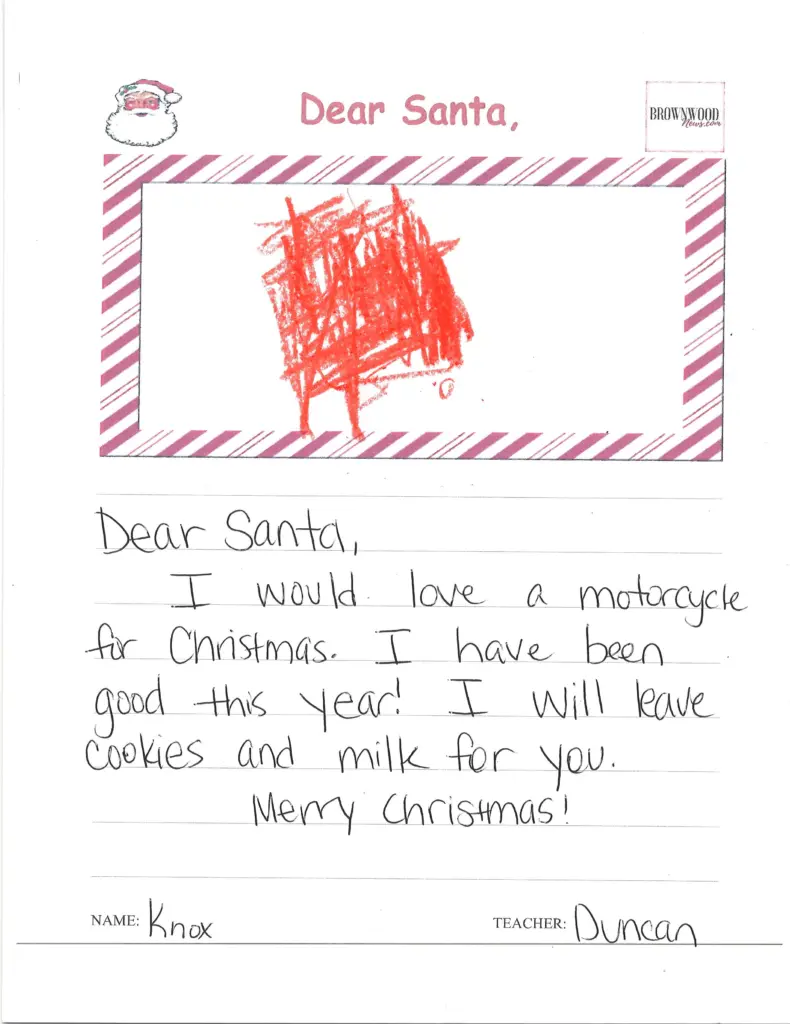 Dear Santa,
BROWNWOOD
News.com
Dear Santa,
I would love a motorcycle
for Christmas. I have been
good this year! I will leave
cookies and milk for you.
Merry Christmas!
NAME: Knox
TEACHER: Duncan